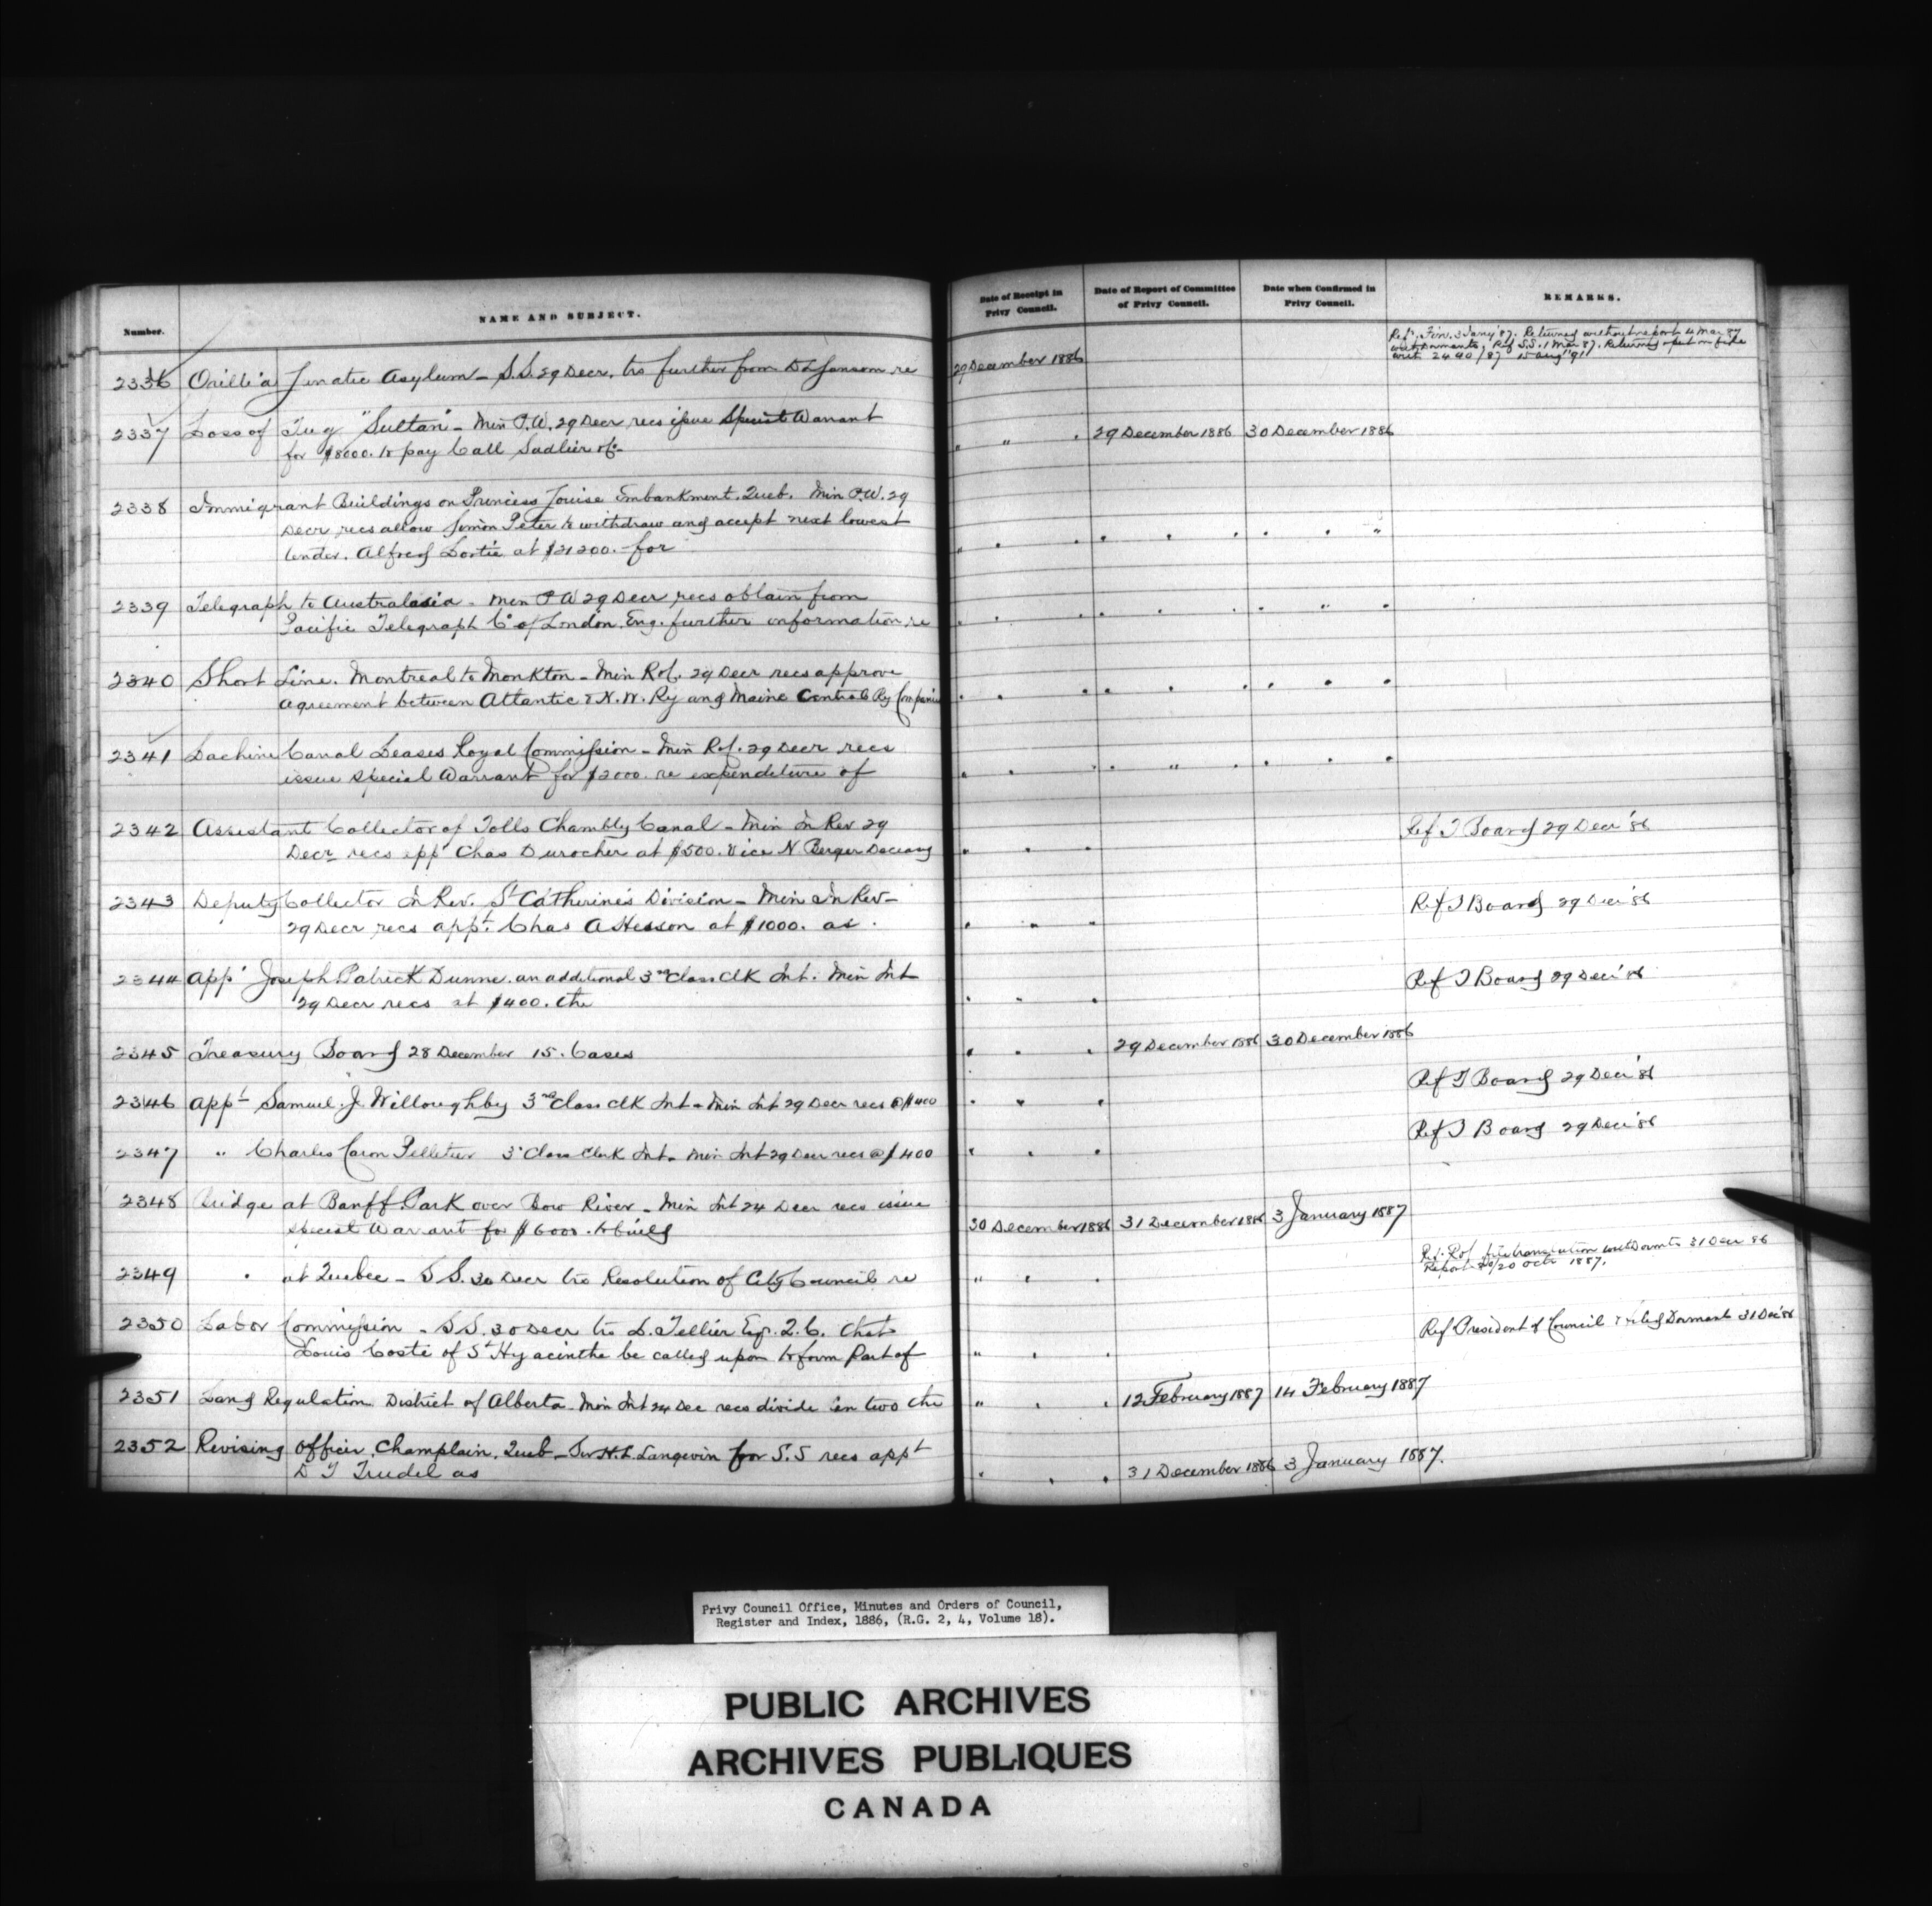 Number.
NAME AND SUBJECT.
Date of Receipt in Privy Council.
Date of Report of Committee of Privy Council.
Date when Confirmed in Privy Council.
REMARKS.
2336 Orillia Lunatic Asylum - S.S. 29 Decr. trs further from Dr re
29 December 1886
Ref. Fin. 3 Jany '87. Returned without report 4 Mar 87
Ref S.S. 1 Mar 87. Returned
2490/87
2337 Loss of Tug "Sultan" - Min P.W. 29 Decr recs issue Special Warrant
for $8000. to pay Call Sadlier of -
" " " 29 December 1886 30 December 1886
2338 Immigrant Buildings on Princess Louise Embankment. Queb. Min P.W. 29
Decr recs allow Simon Peter to withdraw and accept next lowest
tender. Alfred Lortie at $21200. for
" " " " " " " " "
2339 Telegraph to Australasia - Min P W 29 Decr recs obtain from
Pacific Telegraph Co of London. Eng. further information re
" " " " " " " "
2340 Short Line. Montreal to Monkton - Min R&C. 29 Decr recs approve
agreement between Atlantic & N.W. Ry and Maine Central Ry Companies
" " " " " " " " "
2341 Lachine Canal Leases Royal Commission - Min R&C. 29 Decr recs
issue special Warrant for $2000. re expenditure of
" " " " " " " " "
2342 Assistant Collector of Tolls Chambly Canal - Min In Rev 29
Decr recs appt Chas Durocher at $500. vice N. Berger Deceased
" " " Ref T Board 29 Decr '86
2343 Deputy Collector In Rev. St Catherines Division - Min In Rev -
29 Decr recs appt. Chas A Hesson at $1000. as.
" " " Ref T Board 29 Decr '86
2344 Appt Joseph Patrick Dunne. an additional 3rd Class Clk Int. Min Int
29 Decr recs at $400. the
" " " Ref T Board 29 Decr '86
2345 Treasury Board 28 December 15. Cases
" " " 29 December 1886 30 December 1886
2346 Appt Samuel. J. Willoughby 3rd Class Clk Int - Min Int 29 Decr recs @ $400
" " " Ref T Board 29 Decr '86
2347 " Charles Caron Pelletier 3rd Class Clerk Int - Min Int 29 Decr recs @ $400
" " " Ref T Board 29 Decr '86
2348 Bridge at Banff Park over Bow River - Min Int 24 Decr recs issue
special Warrant for $6000. to build
30 December 1886 31 December 1886 3 January 1887
2349 " at Quebec - S S. 30 Decr trs Resolution of City Council re
" " " Ref. R&C 31 Decr 86
Report 20 Octr 1887.
2350 Labor Commission - S S. 30 Decr trs L. Tellier Esq. Q.C. that
Louis Coste of St Hyacinthe be called upon to form part of
" " " Ref President of Council & filed Dormant 31 Dec '86
2351 Land Regulation District of Alberta Min Int 24 Dec recs divide in two the
" " " 12 February 1887 14 February 1887
2352 Revising Officer. Champlain. Queb - Sir H.L. Langevin for S.S recs appt
D T Trudel as
" " " 31 December 1886 3 January 1887.
Privy Council Office, Minutes and Orders of Council,
Register and Index, 1886, (R.G. 2, 4, Volume 18).
PUBLIC ARCHIVES
ARCHIVES PUBLIQUES
CANADA